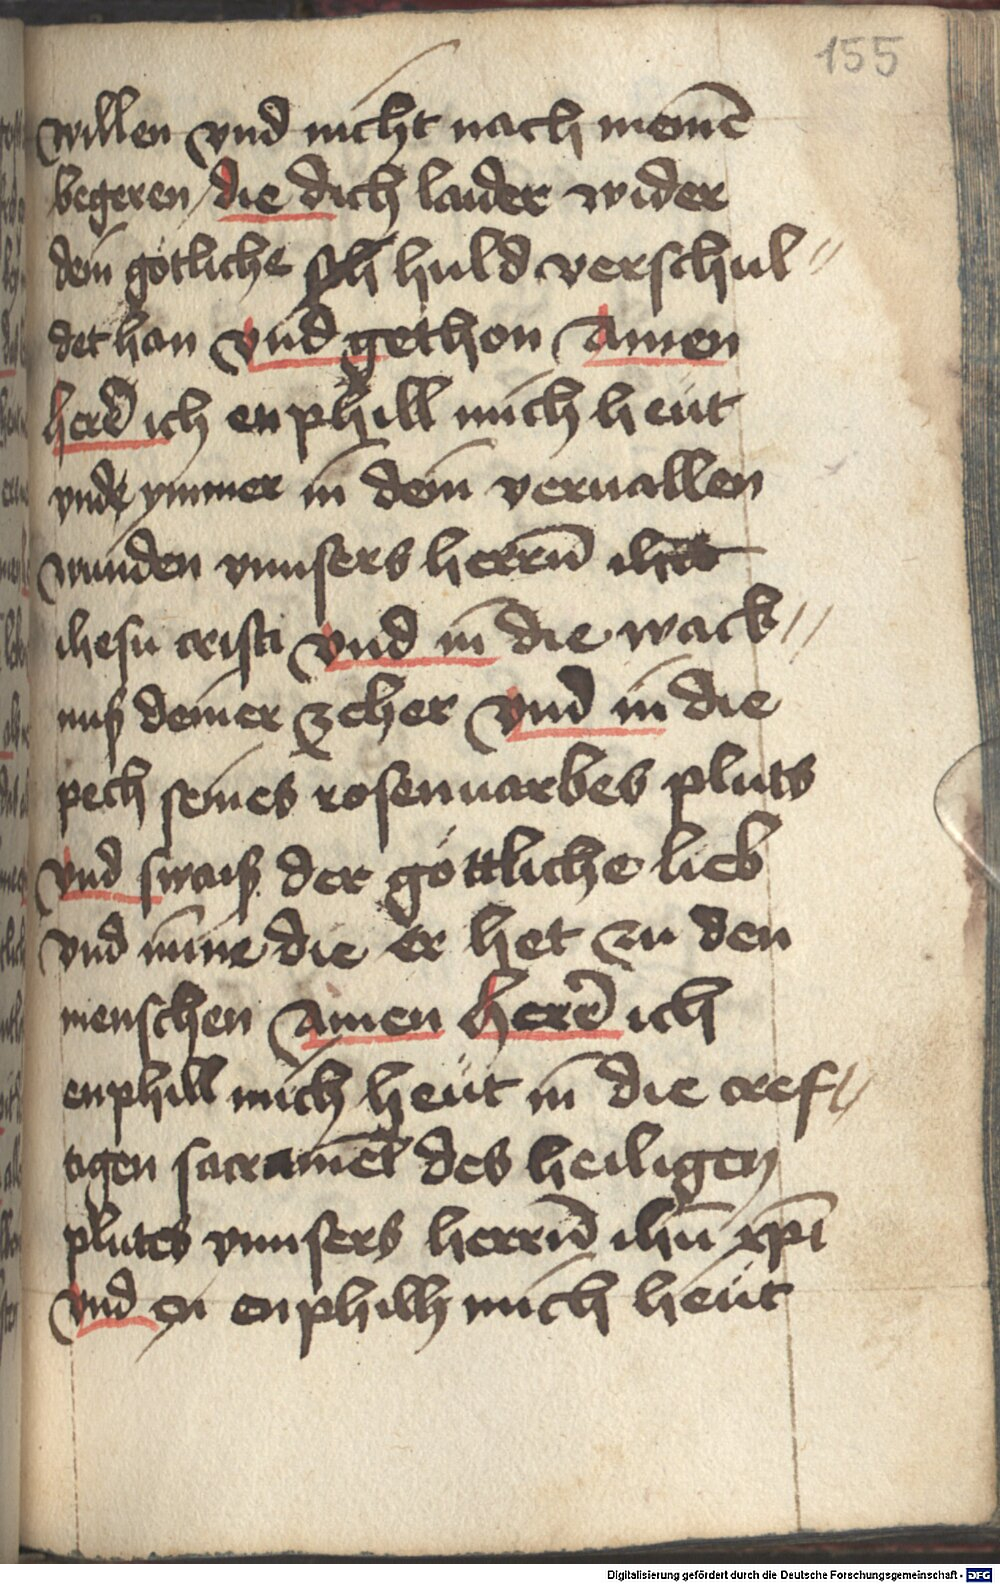 155
willen vnd nicht nach meinē
begeren die dich laider wider
dein gotliche sch huld verschul〃
det han vnd gethon Amen
herē ich enphill mich heüt
vnd ymmer in dein veruallen
wunden vnnsers herrn̄ ihūs
ihesu cristi vnd in die wack〃
nuß deiner zcher vnd in die
pech seines rosenuarbes pluts
vnd swaiß der göttliche lieb
vnd minne die er het zu den
menschen Amen herē ich
enphill mich heüt in die cref〃
tigen sacramēt des heiligen
plutes vnnsers herrn̄ ihū xpī
vnd en enphilh mich heüt
Digitalisierung gefördert durch die Deutsche Forschungsgemeinschaft - DFG